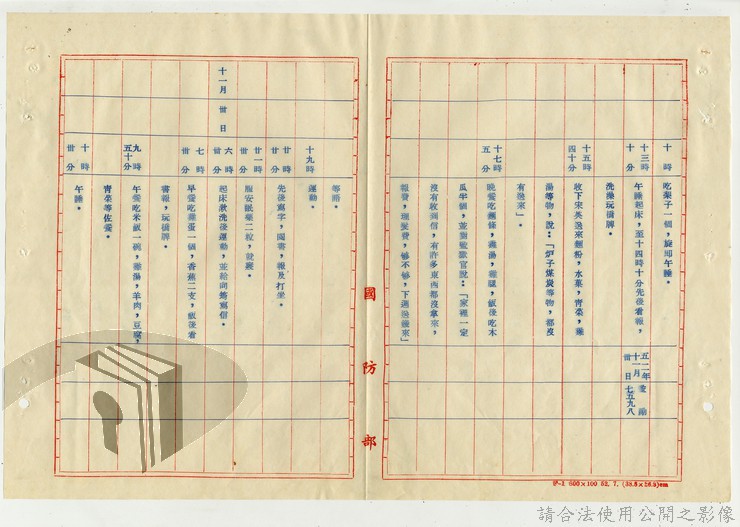 十時　吃梨子一個，旋即午睡。
十三時十分　午睡起床，至十四時十分先後看報，
洗操玩橋牌。
十五時四十分　收下宋英送來麵粉，水菓，青菜，雞
湯等物，說：「炉子煤炭等物，都沒
有送來」。
十七時五分　晚餐吃麵條，雞湯，雞腿，飯後吃木
瓜半個，並對監獄官說：「家裡一定
沒有收到信，有許多東西都沒拿來，
報費，理髮費，够不够，下週送錢來」
五二年十一月卅日
七五九八
國防部
等語。
十九時　運動。
廿時廿分　先後寫字，閱書，報及打坐。
廿一時卅分　服安眠藥二粒，就寢。
十一月卅日
六時卅分　起床漱洗後運動，並給向筠寫信。
七時卅分　早餐吃雞蛋一個，香蕉二支，飯後看
書報，玩橋牌。
九時五十分　午餐吃米飯一碗，雞湯，羊肉，豆腐，
青菜等佐餐。
十時卅分　午睡。
52. 7. (38.5×26.9)cm
請合法使用公開之影像